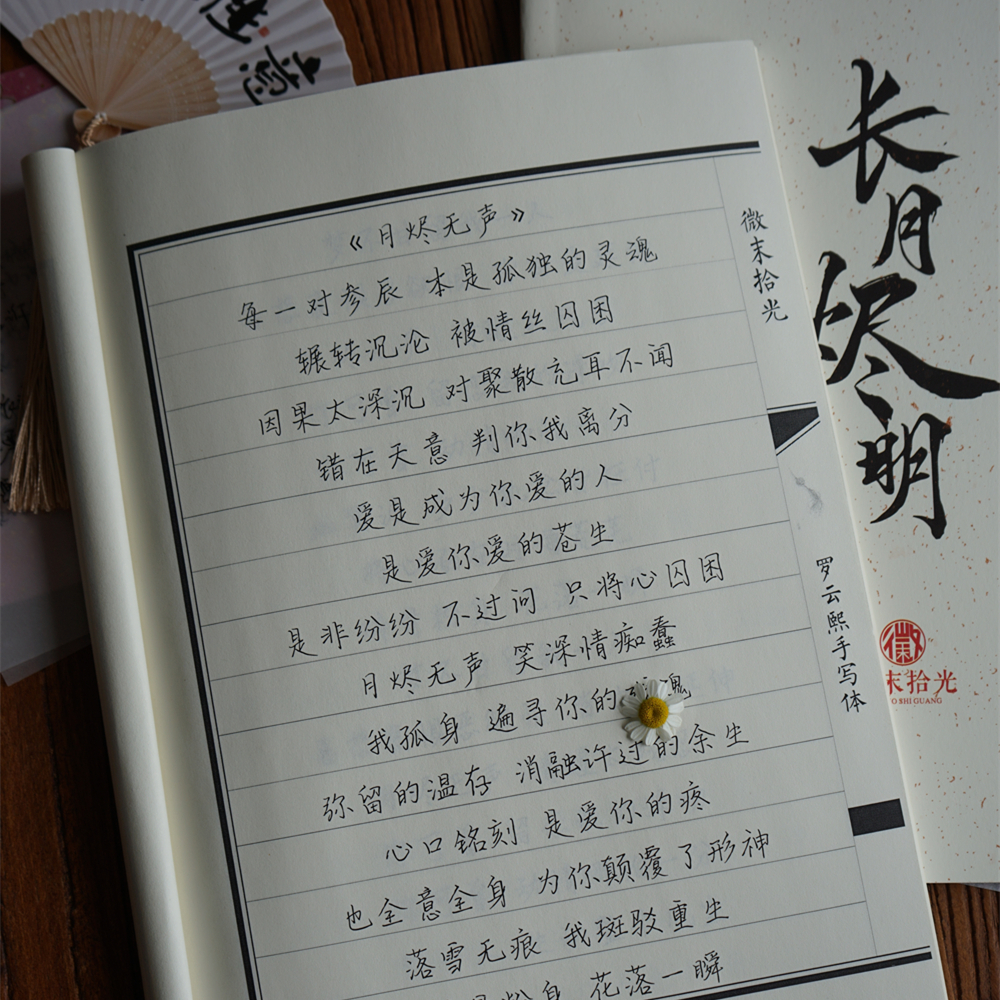 意
《月烬无声》
每一对参辰 本是孤独的灵魂
辗转沉沦 被情丝囚困
因果太深沉 对聚散充耳不闻
错在天意 判你我离分
爱是成为你爱的人
是爱你爱的苍生
是非纷纷 不过问 只将心囚困
月烬无声 笑深情痴蠢
我孤身 遍寻你的 魂
弥留的温存 消融许过的余生
心口铭刻 是爱你的疼
也全意全身 为你颠覆了形神
落雪无痕 我斑驳重生
粉身 花落一瞬
微末拾光
罗云熙手写体
长月烬明
微
末拾光
O SHI GUANG